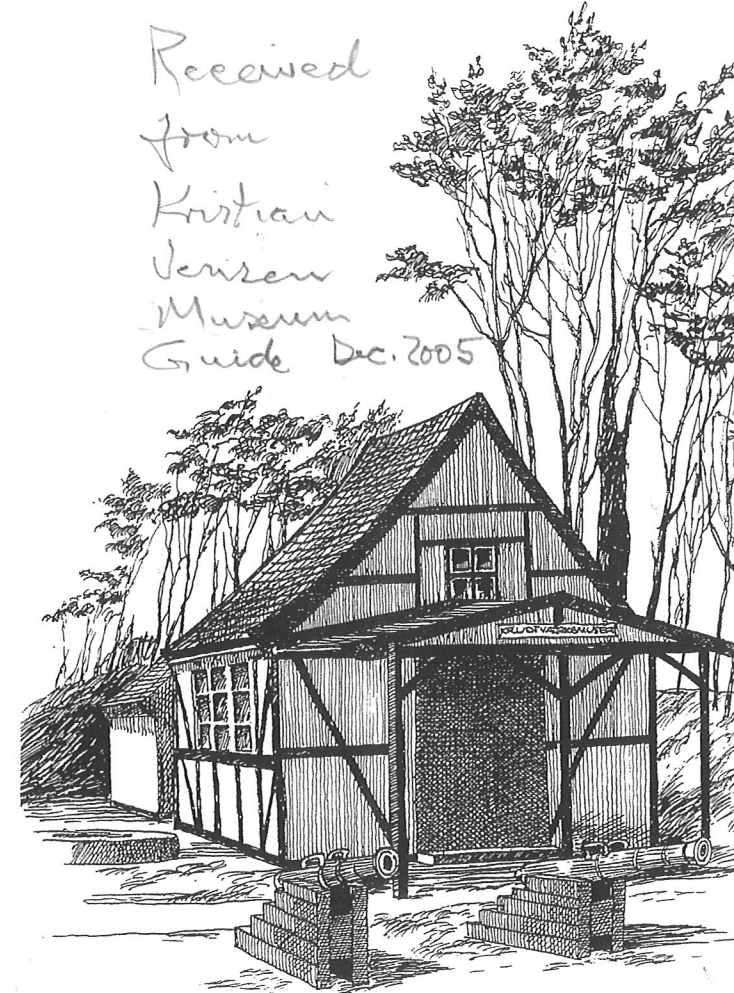 Received
from
Kristian
Jensen
Museum
Guide Dec. 2005